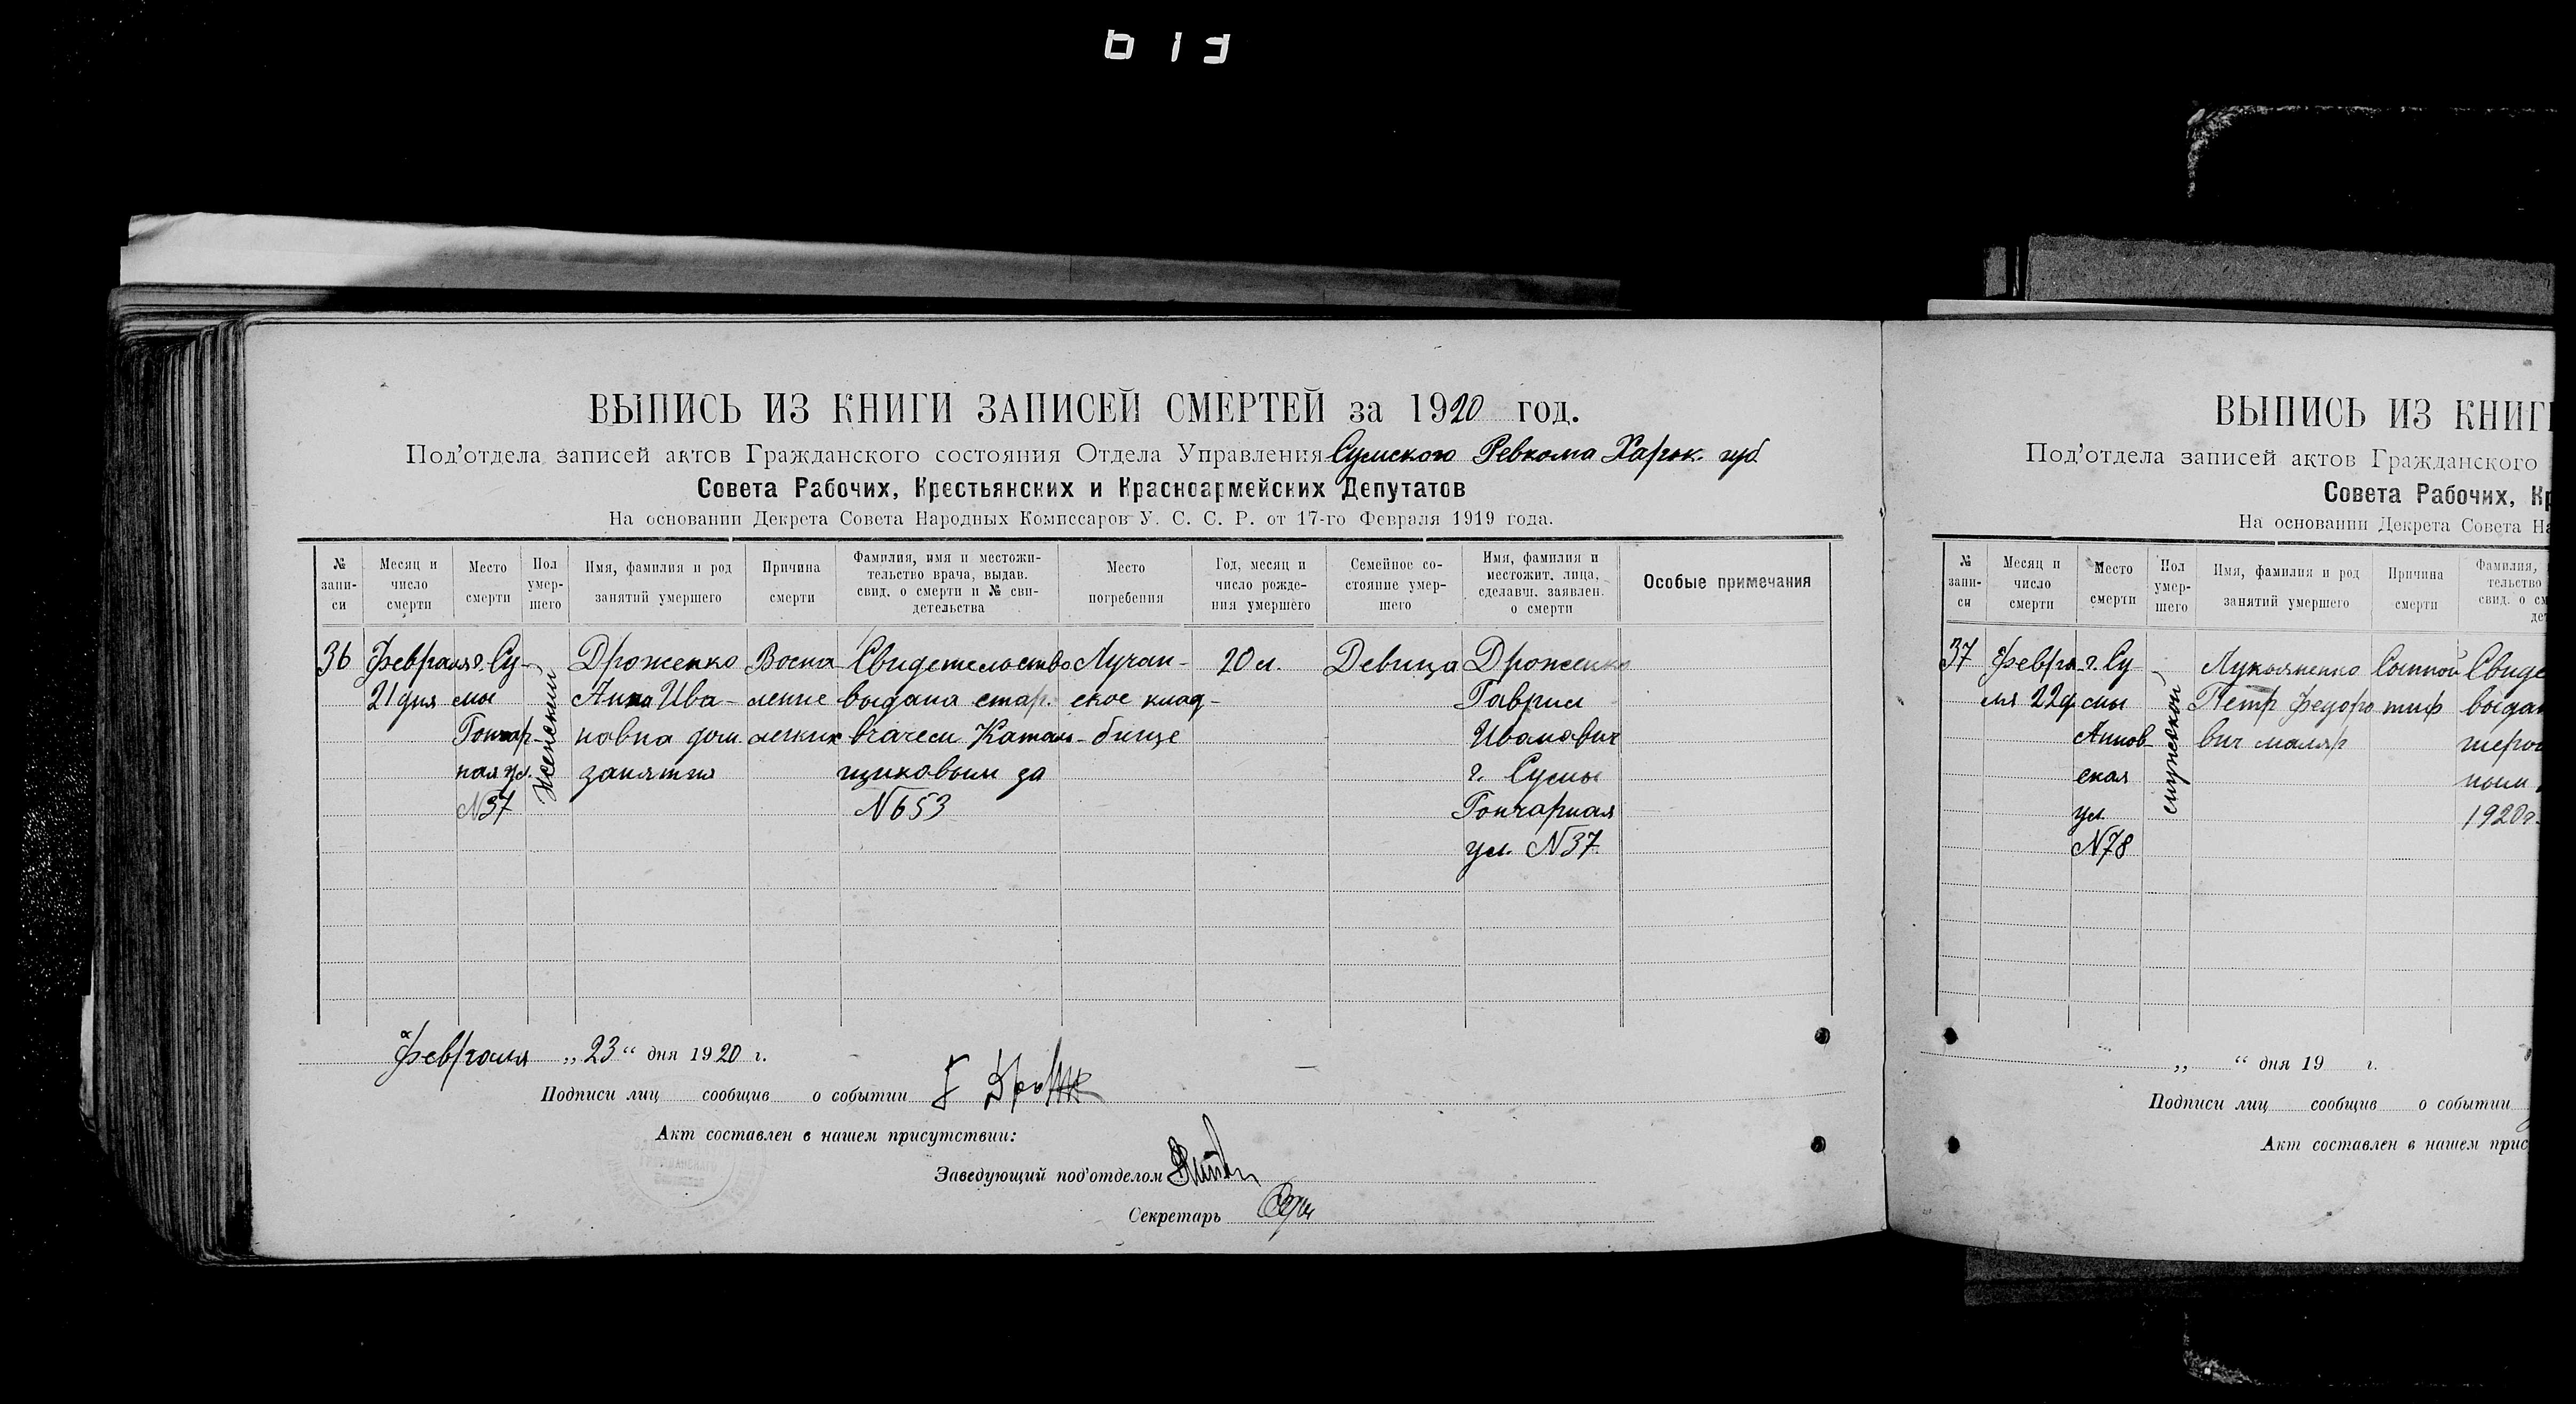 013
ВЫПИСЬ ИЗ КНИГИ ЗАПИСЕЙ СМЕРТЕЙ за 1920 год.
Под'отдела записей актов Гражданского состояния Отдела Управления Сумского Ревкома Харьк. губ.
Совета Рабочих, Крестьянских и Красноармейских Депутатов
На основании Декрета Совета Народных Комиссаров У. С. С. Р. от 17-го Февраля 1919 года.
№ запи-
си
Месяц и
число
смерти
Место
смерти
Пол
умер-
шего
Имя, фамилия и род
занятий умершего
Причина
смерти
Фамилия, имя и местожи-
тельство врача, выдав.
свид. о смерти и № сви-
детельства
Место
погребения
Год, месяц и
число рожде-
ния умершего
Семейное со-
стояние умер-
шего
Имя, фамилия и
местожит. лица,
сделавш. заявлен.
о смерти
Особые примечания
36
Февраля
21 дня
г. Су-
мы
Гончар-
ная ул.
N37
Женский
Дроженко
Анна Ива-
новна дом
занятия
Воспа
ление
легких
Свидетельство
выдана стар.
врачем Каталь-
щиковым за
N653
Лучан-
ское клад-
бище
20 л.
Девица
Дроженко
Гаврил
Иванович
г. Сумы
Гончарная
ул. N37
Февраля „23“ дня 1920 г.
Подписи лиц сообщив о событии
Акт составлен в нашем присутствии:
Заведующий под'отделом
Секретарь
ВЫПИСЬ ИЗ КНИГ
Под'отдела записей актов Гражданского
Совета Рабочих, Кр
На основании Декрета Совета На
№ запи-
си
Месяц и
число
смерти
Место
смерти
Пол
умер-
шего
Имя, фамилия и род
занятий умершего
Причина
смерти
Фамилия,
тельство
свид. о см
дет
37
Февра-
ля 22д
г. Су
мы
Аннов-
ская
ул.
N78
мужской
Лукьяненко
Петр Федоро
вич маляр
Сыпной
тиф
Свиде
выдан
ным
1920г.
„ “ дня 19 г.
Подписи лиц сообщив о событии
Акт составлен в нашем прис